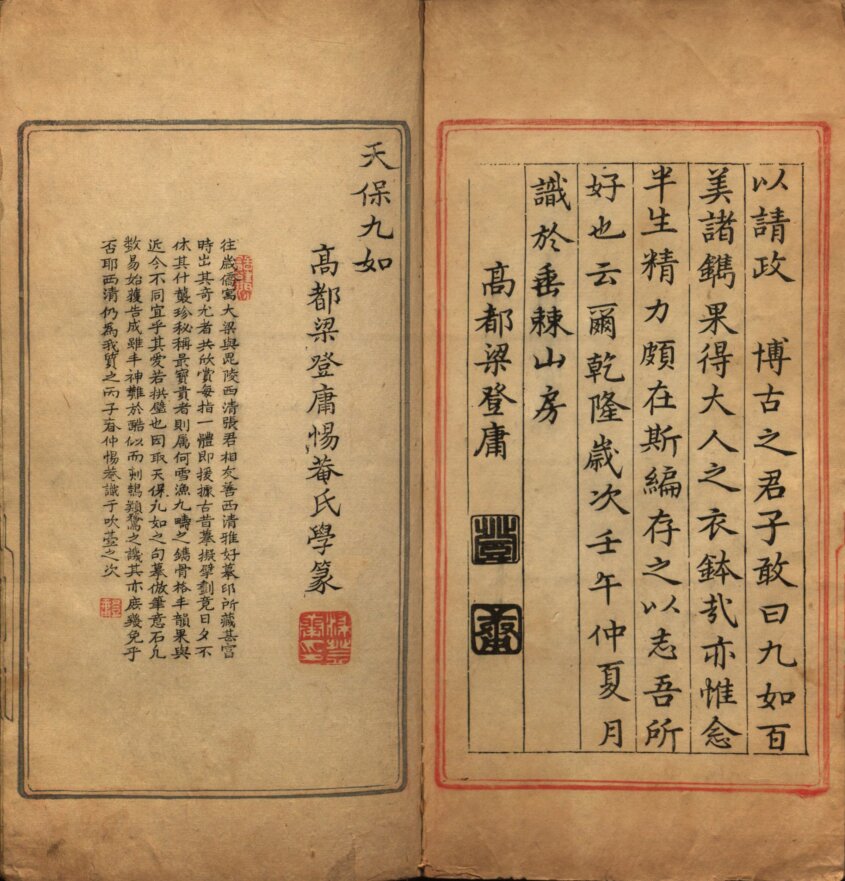 以請政　博古之君子敢曰九如百
美諸鐫果得大人之衣鉢哉亦惟念
半生精力頗在斯編存之以志吾所
好也云爾乾隆歲次壬午仲夏月
識於垂棘山房
高都梁登庸
登
庸
天保九如
高都梁登庸惕菴氏學篆
往歲僑寓大梁與毘陵西清張君相友善西清雅好摹印所藏甚富
時出其奇尤者共欣賞每指一體即援據古昔摹擬擘劃竟日夕不
休其什襲珍秘稱最寶貴者則屬何雪漁九疇之鐫骨格丰韻果與
近今不同宜乎其愛若拱璧也因取天保九如之句摹倣筆意石凡
數易始獲告成雖丰神難於酷似而刻鵠類鶩之譏其亦庶幾免乎
否耶西清仍為我質之丙子春仲惕菴識于吹臺之次